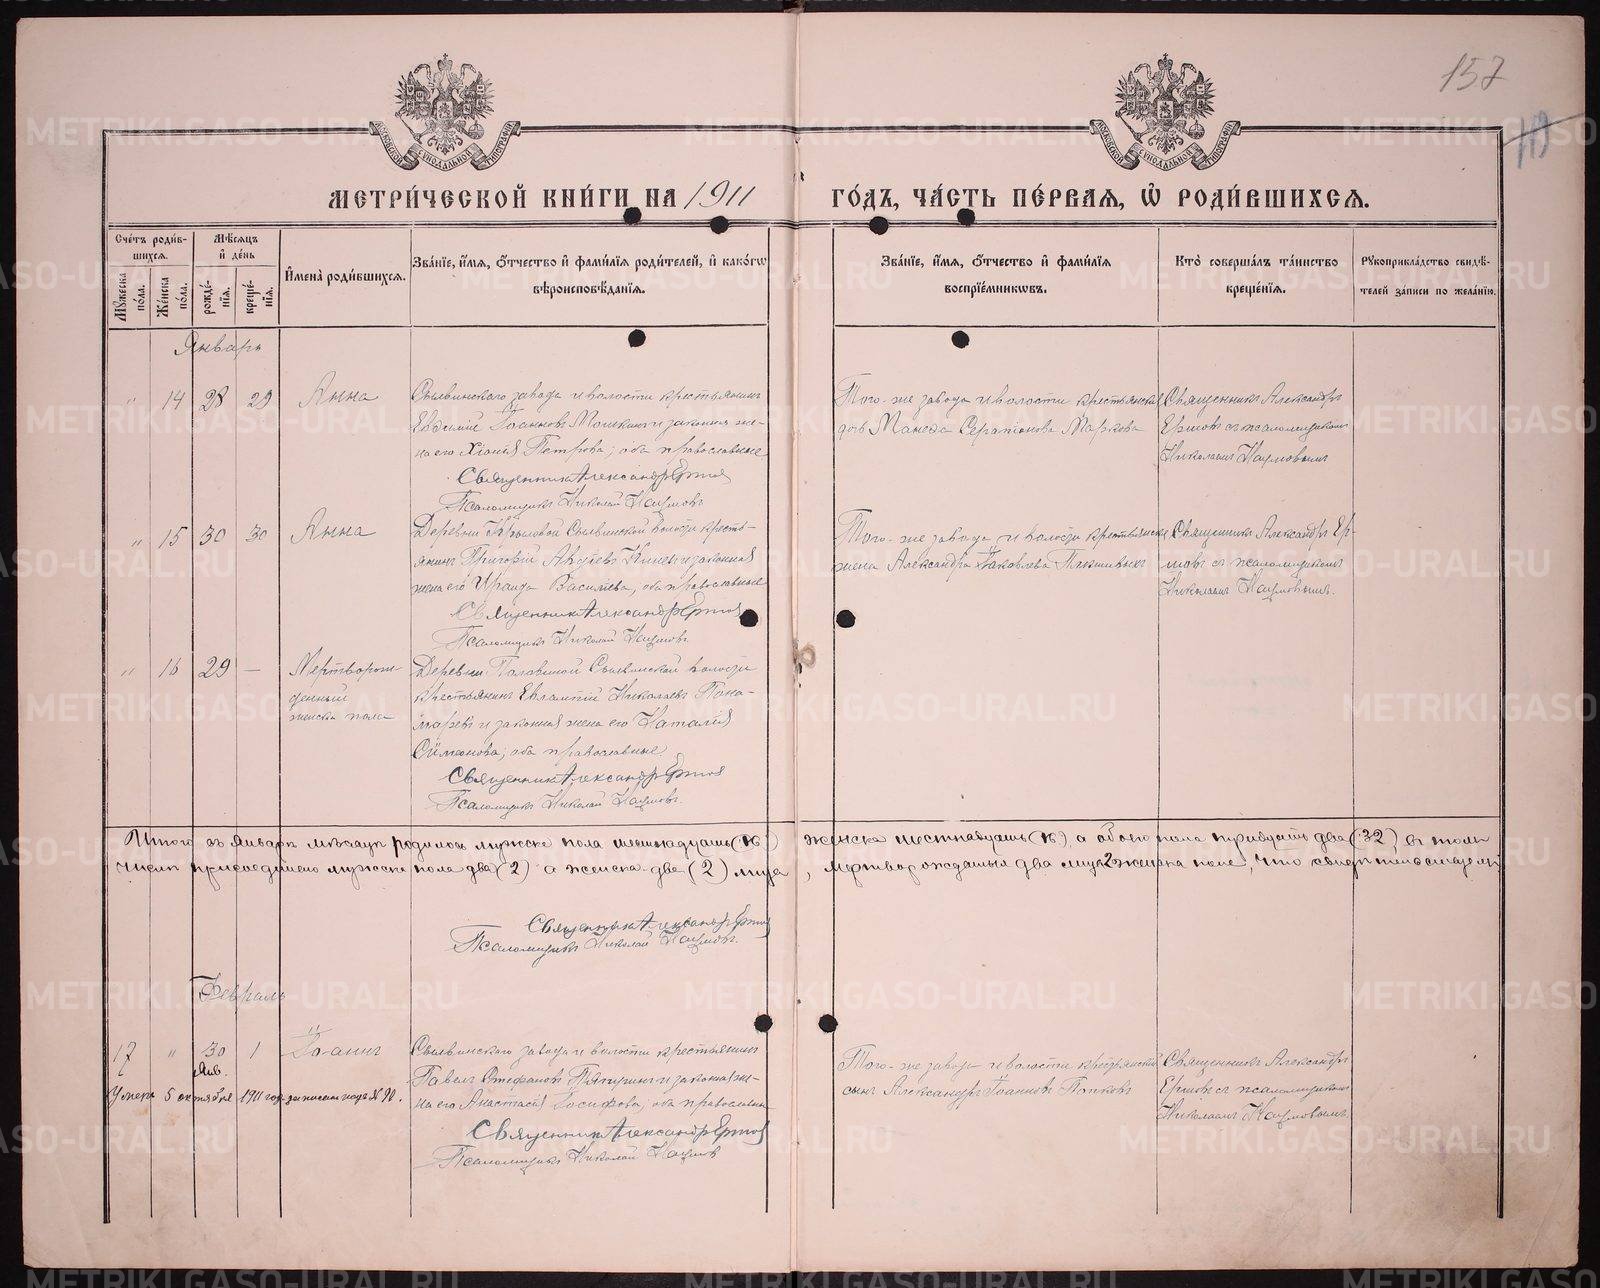 157
МЕТРИ́ЧЕСКОЙ КНИ́ГИ НА 1911 ГО́ДЪ, ЧА́СТЬ ПЕ́РВАЯ, Ѡ҆ РОДИ́ВШИХСЯ.
МОСКОВСКОЙ СѴНОДАЛЬНОЙ ТИПОГРАФІИ
МОСКОВСКОЙ СѴНОДАЛЬНОЙ ТИПОГРАФІИ
Сче́тъ роди́вшихся.
Мꙋ́жеска по́ла.
Же́нска по́ла.
Мѣ́сяцъ и҆ де́нь
рожде́нїя.
креще́нїя.
И҆мена̀ роди́вшихся.
Зва́нїе, и҆́мя, ѻ҆́тчество и҆ фами́лїя роди́телей, и҆ како́гѡ вѣроисповѣ́данїя.
Зва́нїе, и҆́мя, ѻ҆́тчество и҆ фами́лїя воспрїе́мникѡвъ.
Кто̀ соверша́лъ та́инство креще́нїя.
Рꙋкоприкла́дство свидѣ́телей за́писи по жела́нїю.
Январь
" 14 28 29 Анна
Сылвинского завода и волости крестьянинъ
Евдокимъ Іоанновъ и законная же-
на его Хіонія Петрова; оба православные
Священникъ Александръ Ершов
Псаломщикъ Николай Наумовъ
Того-же завода и волости крестьянская
дочь Серапіонова Маркова
Священникъ Александръ
Ершовъ съ псаломщикомъ
Николаемъ Наумовымъ
" 15 30 30 Анна
Деревни Крыловой Сылвинской волости кресть-
янинъ Григорій Авдѣевъ и законная
жена его Ираида Васильева, оба православные
Священникъ Александръ Ершов
Псаломщикъ Николай Наумовъ
Того-же завода и волости крестьянская
жена Александра Іаковлева
Священникъ Александръ Ер-
шовъ съ псаломщикомъ
Николаемъ Наумовымъ.
" 16 29 — Мертворож-
денный
женска пола
Деревни Сылвинской волости
крестьянинъ Евлампій Николаевъ Поно-
маревъ и законная жена его Наталія
Симеонова; оба православные
Священникъ Александръ Ершов
Псаломщикъ Николай Наумовъ.
Итого въ Январѣ мѣсяцѣ родилось мужска пола шестнадцать (16) женска шестнадцать (16) а обоего пола тридцать два (32), въ томъ
числѣ присоединено мужска пола два (2) а женска две (2) лица, мертворожденныхъ два женска пола, что свидѣтельствуемъ
Священникъ Александръ Ершов
Псаломщикъ Николай Наумовъ.
Февраль
17 " 30 1 Іоаннъ
Янв.
Сылвинского завода и волости крестьянинъ
Павелъ Стефановъ и законная же-
на его Анастасія Іосифова; оба православны
Священникъ Александръ Ершов
Псаломщикъ Николай Наумов
Умеръ 5 октября 1911 год записанъ подъ № 90.
Того-же завода и волости крестьянскій
сынъ Александръ Іоанновъ Попковъ
Священникъ Александръ
Ершовъ съ псаломщикомъ
Николаемъ Наумовымъ.
METRIKI.GASO-URAL.RU